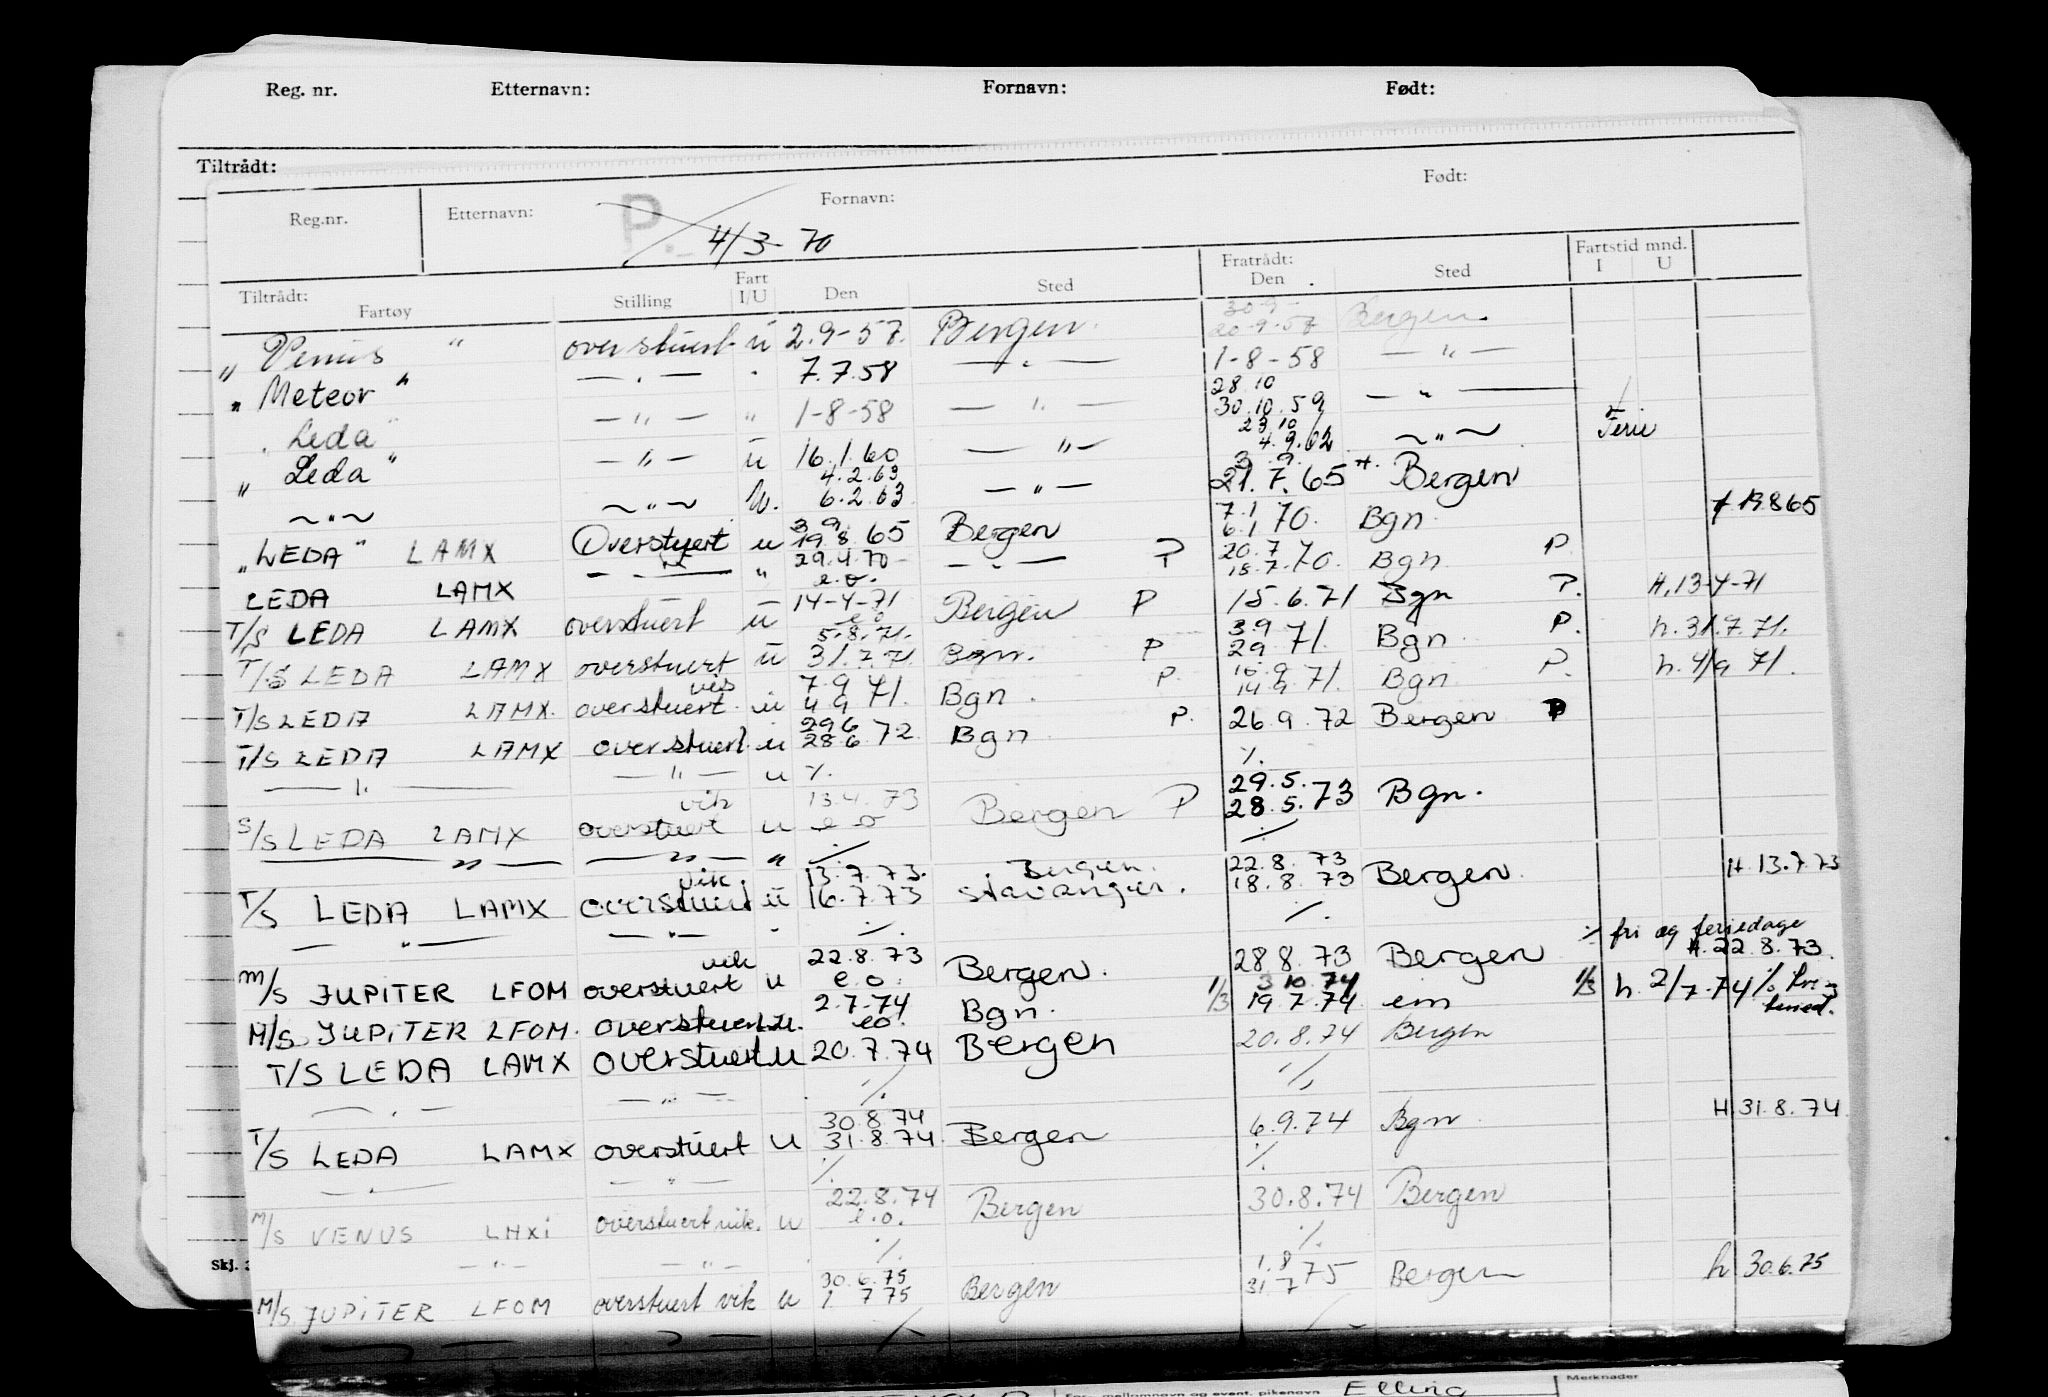 Reg. nr. Etternavn: Fornavn: Født:
Tiltrådt:
Reg.nr. Etternavn: Fornavn: Født:
P. 4/3-70
Tiltrådt: Fartøy Stilling Fart I/U Den Sted Fratrådt: Den Sted Fartstid mnd. I U
30.9-
" Venus " overstuert u 2.9-57. Bergen. 20.9.57 Bergen.
" Meteor " — " — " 7.7.58 — " — 1-8-58 — " —
28.10
" Leda " — " — " 1-8-58 — " — 30.10.59 — " —
23.10
" Leda " — " — u 16.1.60 — " — 4.9.62 — " — Ferie
4.2.63 3.9.
— " — — " — u. 6.2.63 — " — 21.7.65 H. Bergen
3.9 7.1
" LEDA " LAMX Overstuert u 19.8.65 Bergen 6.1 70. Bgn. 19865
29.4.70 20.7
LEDA LAMX — " — " e.o. — " — P 15.7.70. Bgn. P
14-4-71
T/S LEDA LAMX overstuert u e.o Bergen P 15.6.71 Bgn P. H.13-4-71
5.8.71. 3.9
T/S LEDA LAMX overstuert u 31.7.71 Bgn. P 29 71. Bgn. P. h. 31.7.71.
vik 7.9 16.9
T/S LEDA LAMX. overstuert. u 4.9 71. Bgn. P. 14.9.71. Bgn P. h. 4/9 71.
29.6
T/S LEDA LAMX overstuert. u 28.6 72. Bgn P. 26.9.72 Bergen P
— " — — " — u ٪. ٪.
vik 13.4.73 29.5.
S/S LEDA LAMX overstuert u e o Bergen P 28.5.73 Bgn.
— " — — " — " ٪ ٪
vik. 13.7.73. Bergen. 22.8.73
T/S LEDA LAMX overstuert u 16.7.73 Stavanger. 18.8.73 Bergen. H. 13.7.73
— " — — " — " ٪. ٪.
٪ fri og feriedage
vik 22.8.73 H. 22.8.73.
M/S JUPITER LFOM overstuert u e.o. Bergen. 28.8.73 Bergen
2.7.74 3 10 74
M/S JUPITER LFOM. overstuert u. eo. Bgn. 1/3 19.7.74 em 1/3 h. 2/7.74
T/S LEDA LAMX overstuert u 20.7.74 Bergen 20.8.74 Bergen
— " — — " — ٪. ٪
30.8.74
T/S LEDA LAMX overstuert u 31.8.74. Bergen 6.9.74 Bgn. H 31.8.74
— " — — " — ٪ ٪
22.8.74
M/S VENUS LHXI overstuert vik. u e.o. Bergen 30.8.74 Bergen
— " — — " — ٪. ٪
Skj.
30.6.75 1.8
M/S JUPITER LFOM overstuert vik u 1 7 75 Bergen 31 7 75 Bergen h 30.6.75
— " — — " — ٪ ٪
Elling
Merknader